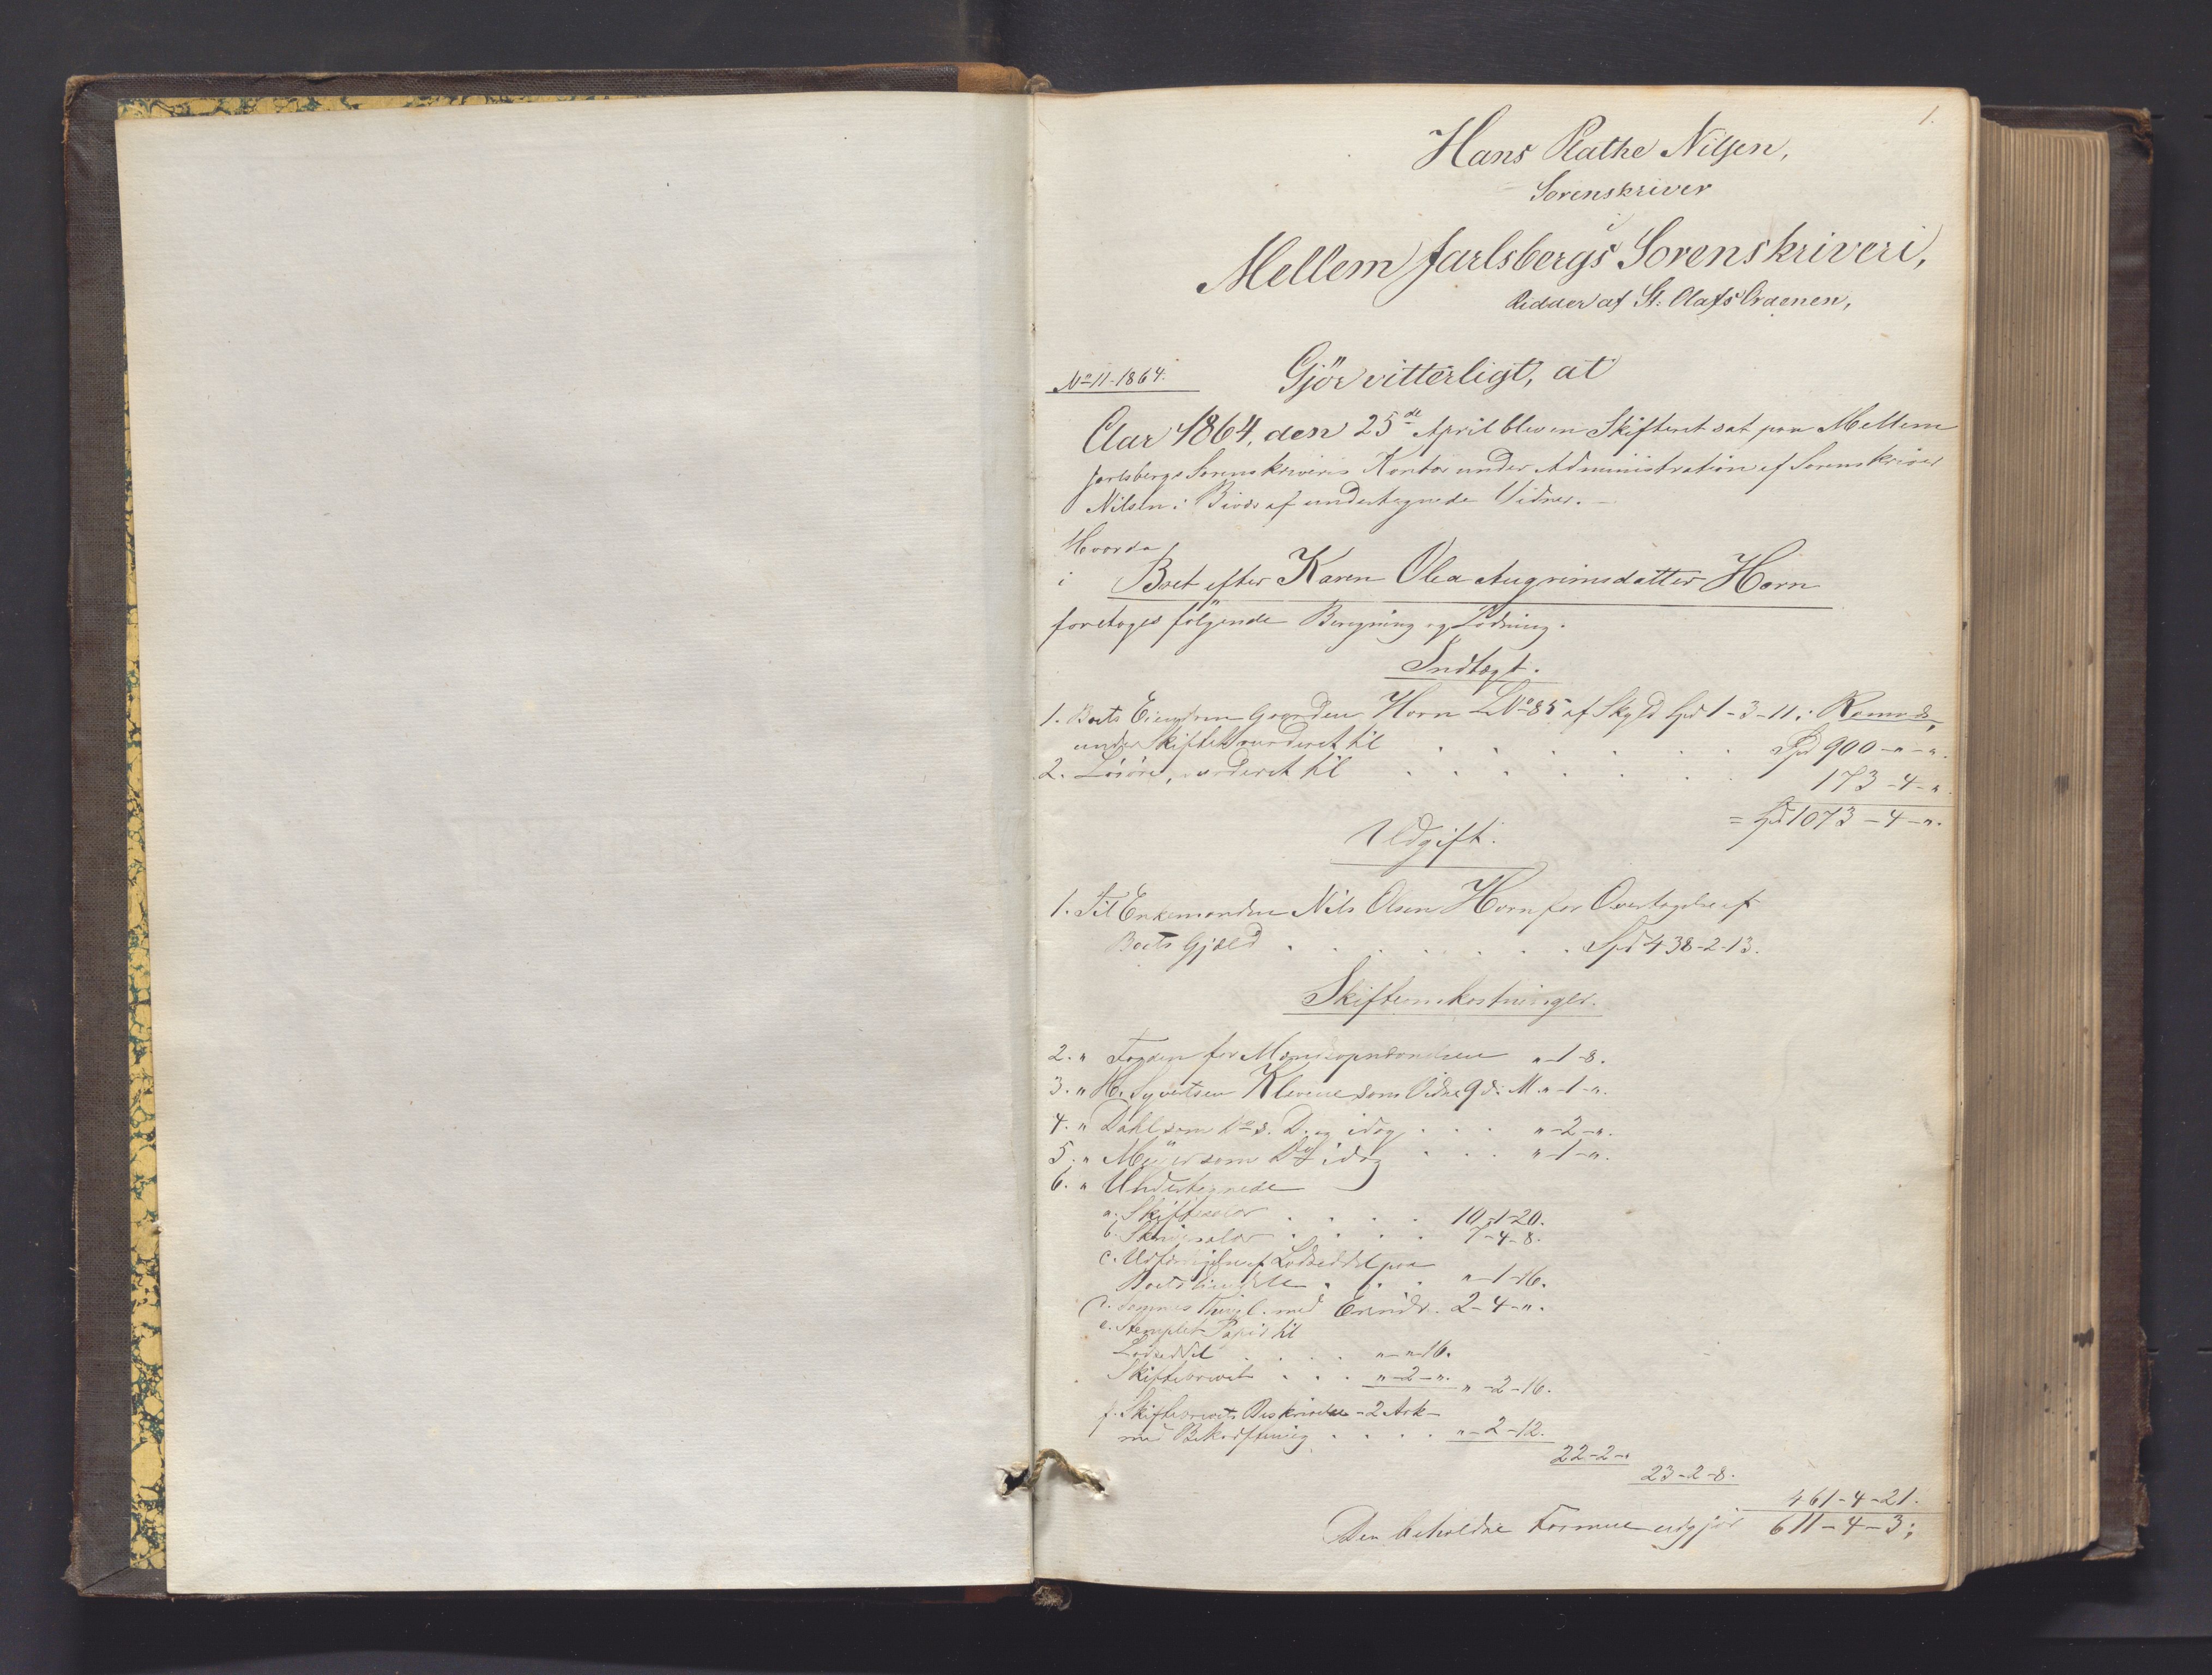 1.
Hans Rathe Nilsen,
Sorenskriver
i
Mellem Jarlsbergs Sorenskriveri,
Ridder af St: Olafs Ordenen,
No 11-1864.
Gjör vitterligt, at
Aar 1864, den 25de April blev en Skifteret sat paa Mellem
Jarlsbergs Sorenskriveris Kontor under Administration af Sorenskriver
Nilsen i Bivær af undertegnede Vidner. –
Hvorda
i Boet efter Karen Olea Augrimsdatter Horn
foretoges følgende Beregning og Lodning.
Indtægt.
1. Boets Eiendom Gaarden Horn LNo 85 af Skyld Spd 1-3-11 i Ramnæs,
under Skiftet vurderet til . . . . . . . Spd 900-"-".
2. Løsøre, vurderet til . . . . . . 173-4-".
= Spd 1073-4-".
Udgift.
1. Til Enkemanden Nils Olsen Horn for Overtagelse af
Boets Gjæld . . . . . . . Spd 438-2-13.
Skifteomkostninger.
2. " Fogden for "-1-8.
3. " H. Syvertsen Klevene som Vidne 9 d: M. "-1-".
4. " Dahl som do s. D. og idag . . . "-2-".
5. " Meyer som Do idag . . . "-1-".
6. " Undertegnede
a. Skiftesalær . . . . 10-1-20.
b. Skriversalær . . . . 7-4-8.
c. Udfærdigelse af Lodseddel paa
Boets Eiendele . . . "-1-16.
d. Sammes Thingl. med Erindr. 2-4-".
e. Stemplet Papir til
Lodseddel . . . . "-"-16.
Skiftebrevet . . . "-2-". "-2-16.
f. Skiftebrevets Beskrivelse - 2 Ark -
med Bekræftning . . . . "-2-12.
22-2-"
23-2-8.
461-4-21.
Den beholdne Formue udgjør 611-4-3;